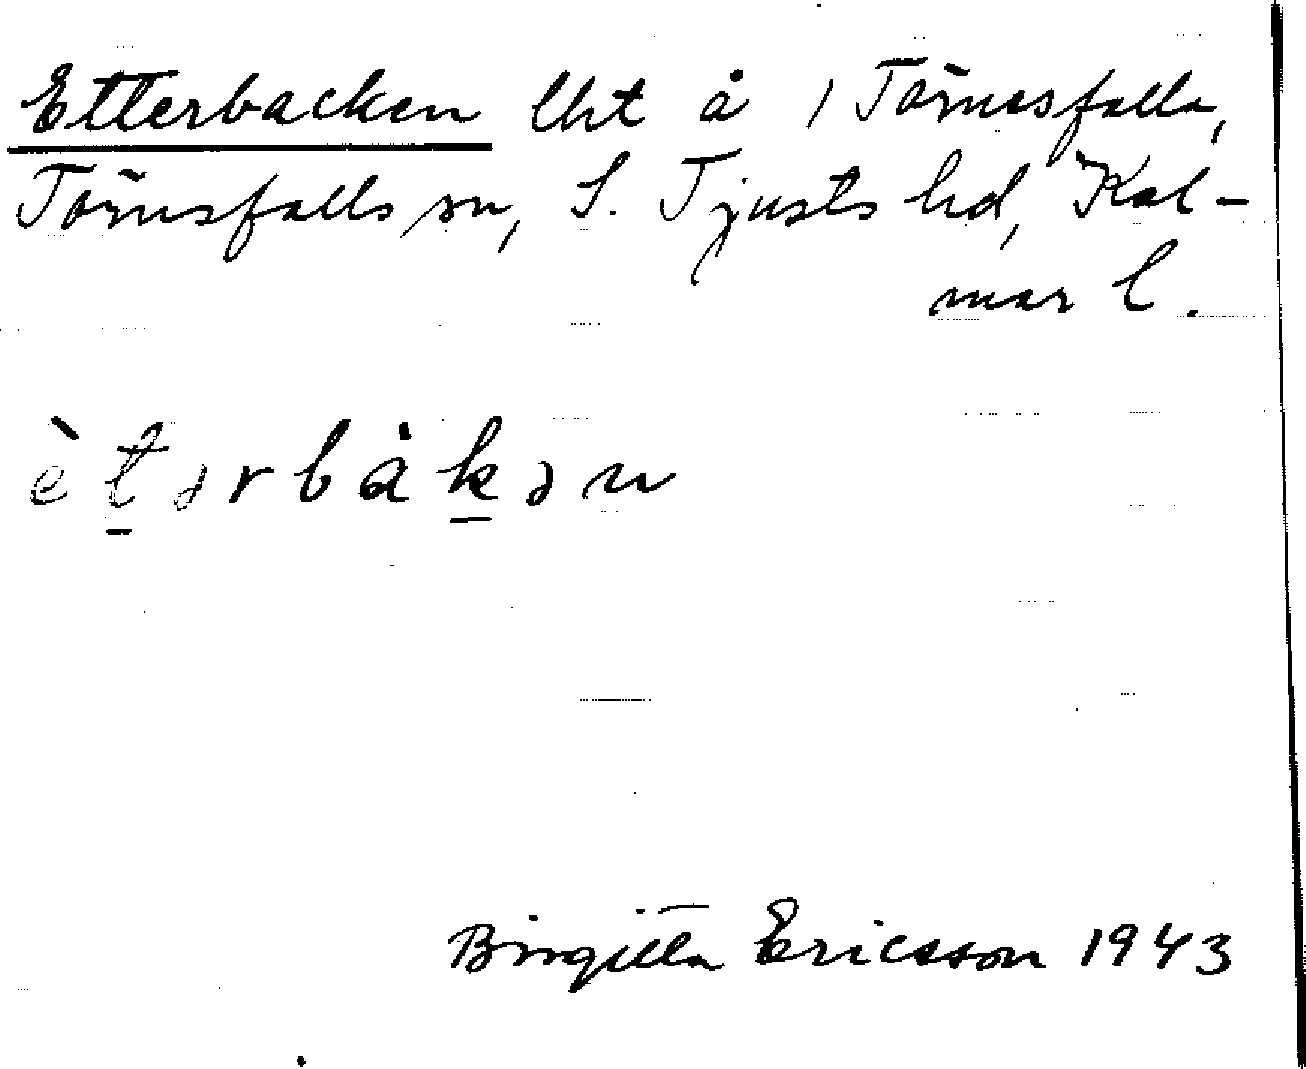 Etterbacken lht å 1 Törnesfalla,
Törnsfalls sn, S. Tjusts hd, Kal-
mar l.
èt̠ərbàk̠ən
Birgitta Ericsson 1943